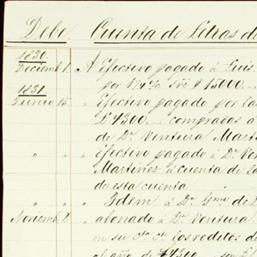 Debe. Cuenta de Letras de
1830.
Diciemb. 1. A Efectivo pagado á Luis
por 1¾% sre $ 13000
1831.
Junio 15. " Efectivo pagado por la
£4300 compradas a
de Dn. Ventura Mart
" " Efectivo pagado á Dn. Ven
Martinez á cuenta de la
de esta cuenta
" " " Idem á Dn. de D
Noviemb. 2. " abonado á Dn. Ventura
en su cta. cte. los reditos de
el año de £4300